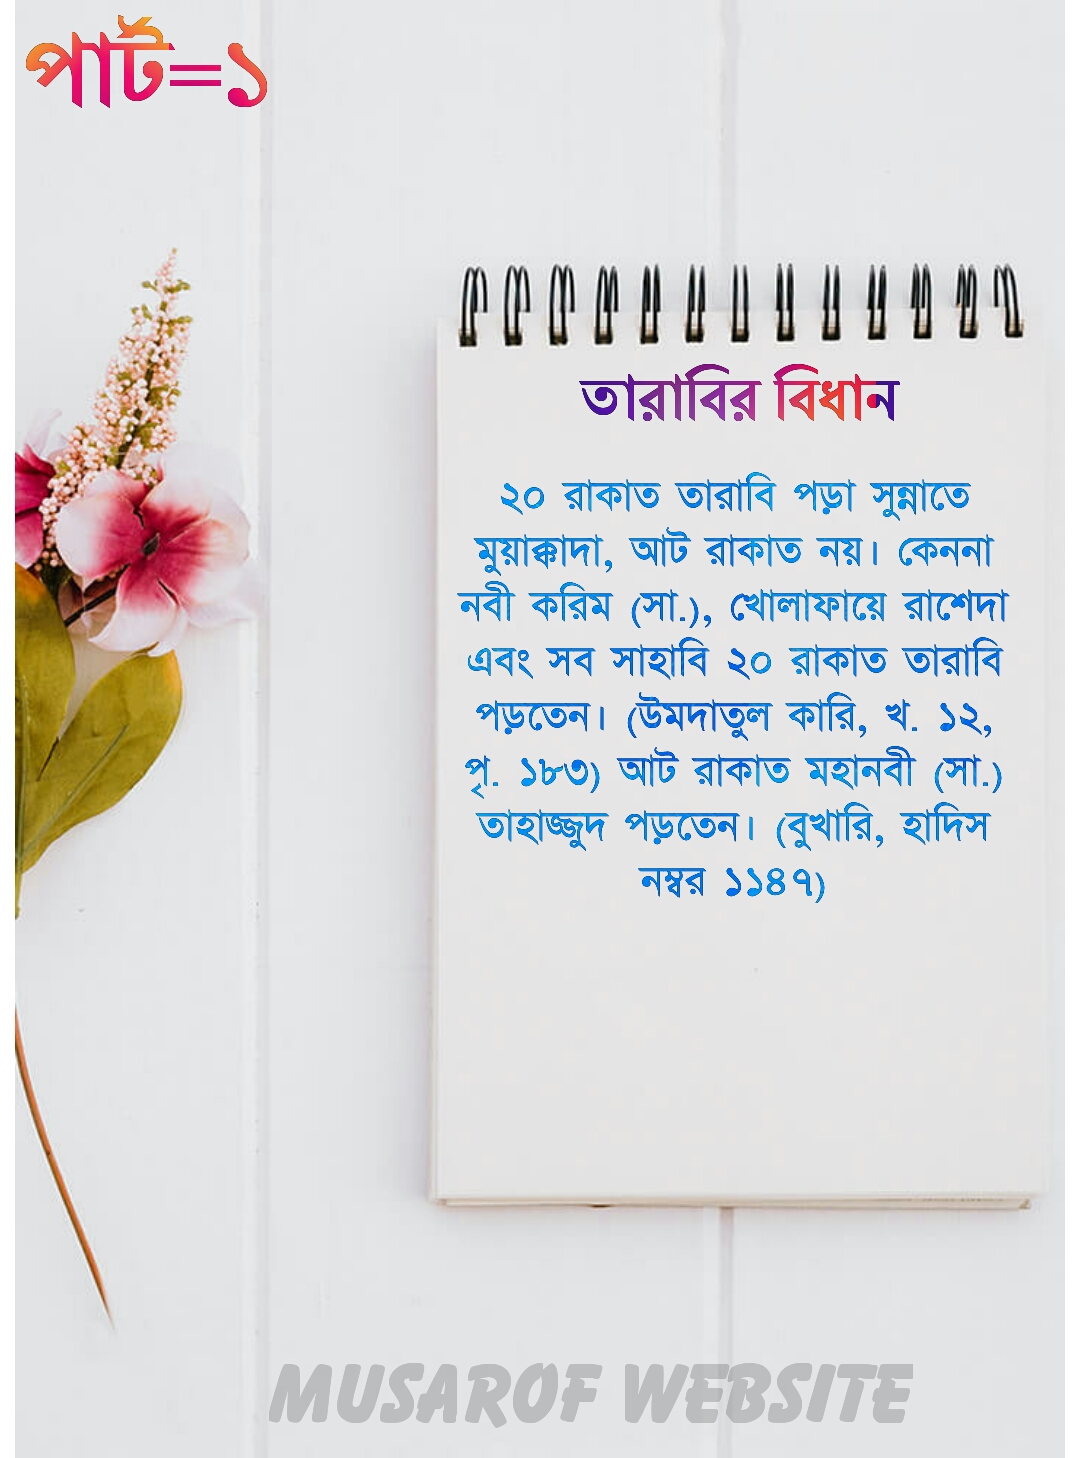 পার্ট=১
তারাবির বিধান
২০ রাকাত তারাবি পড়া সুন্নাতে
মুয়াক্কাদা, আট রাকাত নয়। কেননা
নবী করিম (সা.), খোলাফায়ে রাশেদা
এবং সব সাহাবি ২০ রাকাত তারাবি
পড়তেন। (উমদাতুল কারি, খ. ১২,
পৃ. ১৮৩) আট রাকাত মহানবী (সা.)
তাহাজ্জুদ পড়তেন। (বুখারি, হাদিস
নম্বর ১১৪৭)
MUSAROF WEBSITE